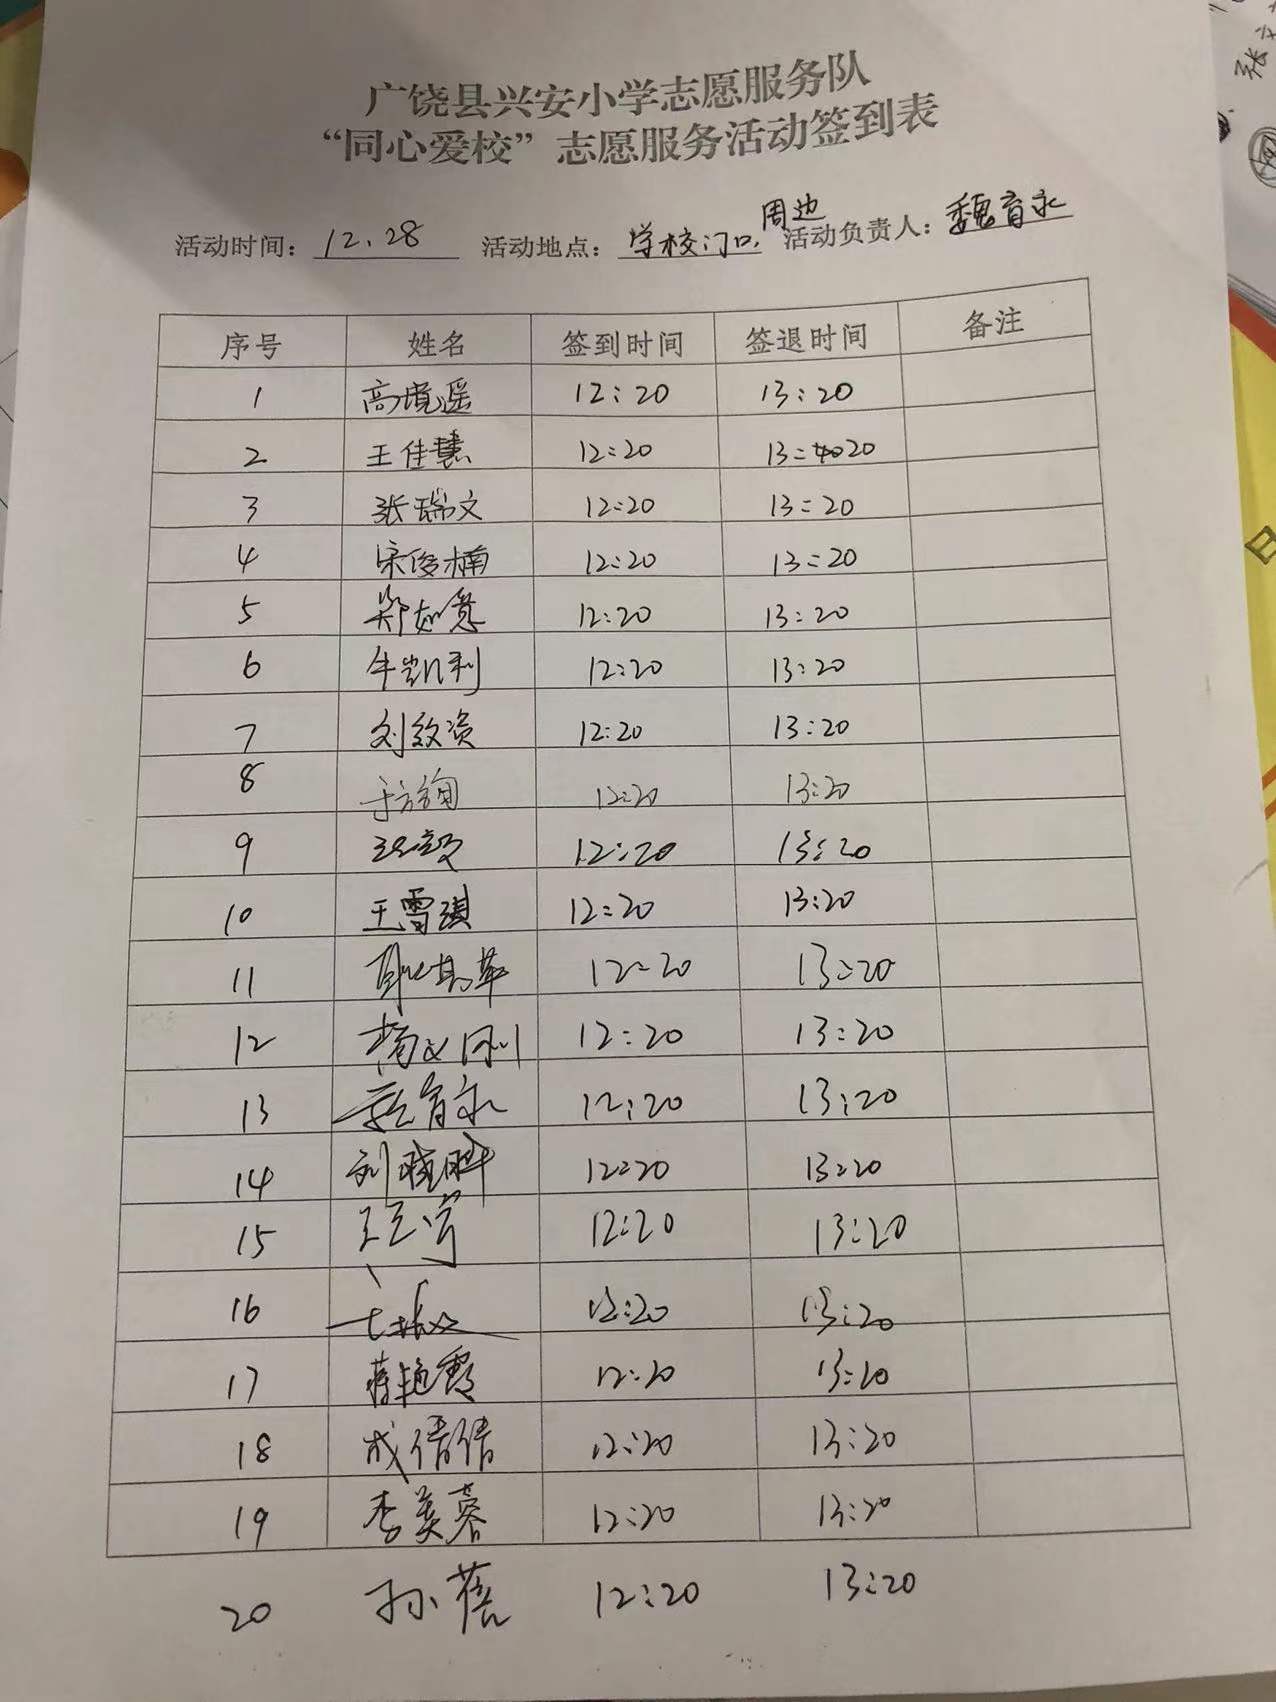 广饶县兴安小学志愿服务队
“同心爱校”志愿服务活动签到表
周边
活动时间：12.28 活动地点：学校门口, 活动负责人：魏育永
序号 姓名 签到时间 签退时间 备注
1 高境遥 12:20 13:20
2 王佳慧 12:20 13:20
3 张瑞文 12:20 13:20
4 宋俊楠 12:20 13:20
5 郑如意 12:20 13:20
6 牛凯利 12:20 13:20
7 刘效资 12:20 13:20
8 12:20 13:20
9 12:20 13:20
10 王雪琪 12:20 13:20
11 12:20 13:20
12 杨文刚 12:20 13:20
13 魏育永 12:20 13:20
14 刘晓晔 12:20 13:20
15 12:20 13:20
16 12:20 13:20
17 蒋艳霞 12:20 13:20
18 成倩倩 12:20 13:20
19 李美蓉 12:20 13:20
20 孙蓓 12:20 13:20